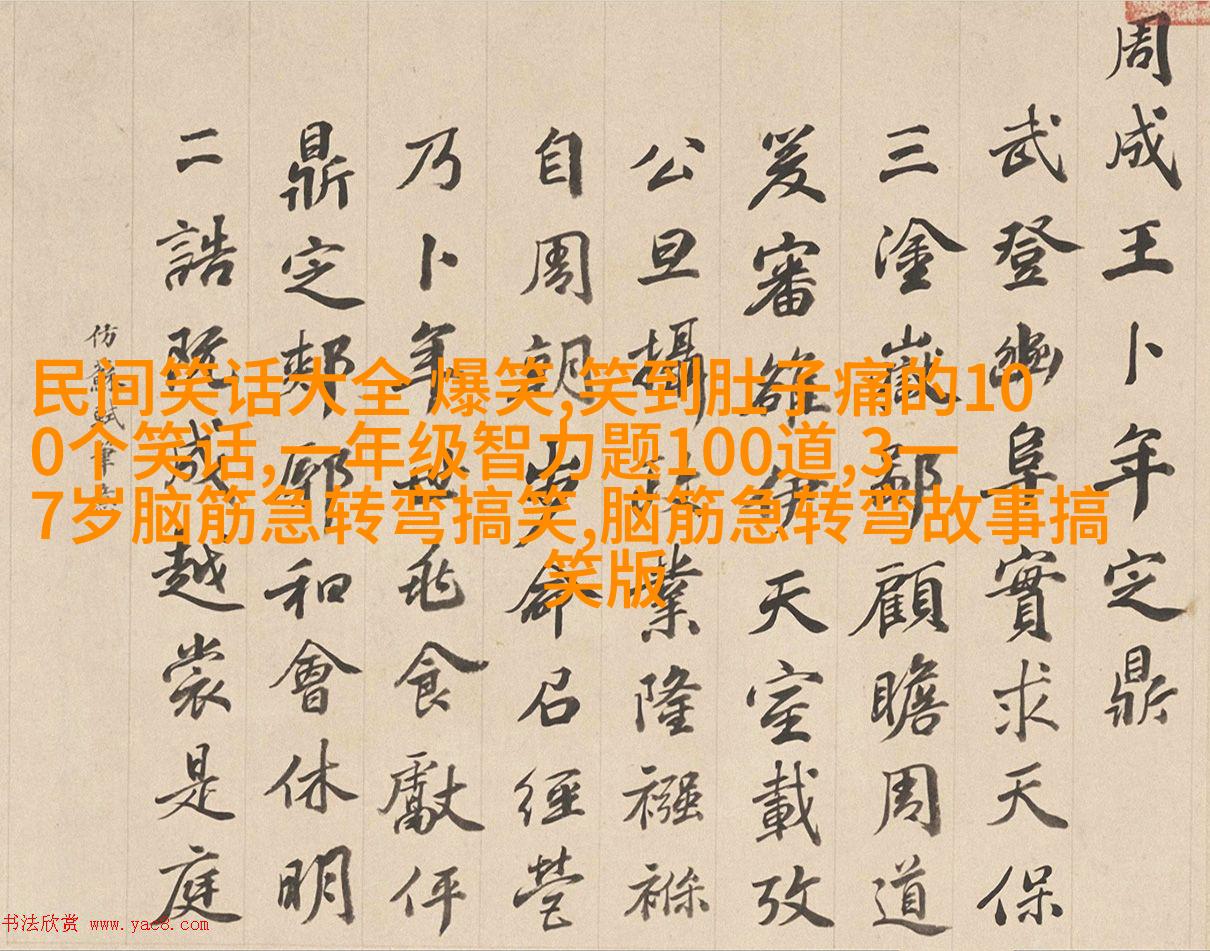 周成王卜年定鼎
武登幽阜實求天保
三塗嶽鄙顧瞻周道
爰審雒伊天室載攷
公旦攝政業隆襁褓
自周朝步命召經營
乃卜年世兆食獻伻
鼎定郟鄏和會休明
二誥既成越裳是庭
仿蘇軾筆
民间笑话大全 爆笑,笑到肚子痛的10
0个笑话,一年级智力题100道,3一
7岁脑筋急转弯搞笑,脑筋急转弯故事搞
笑版
书法欣赏 www.yac8.com